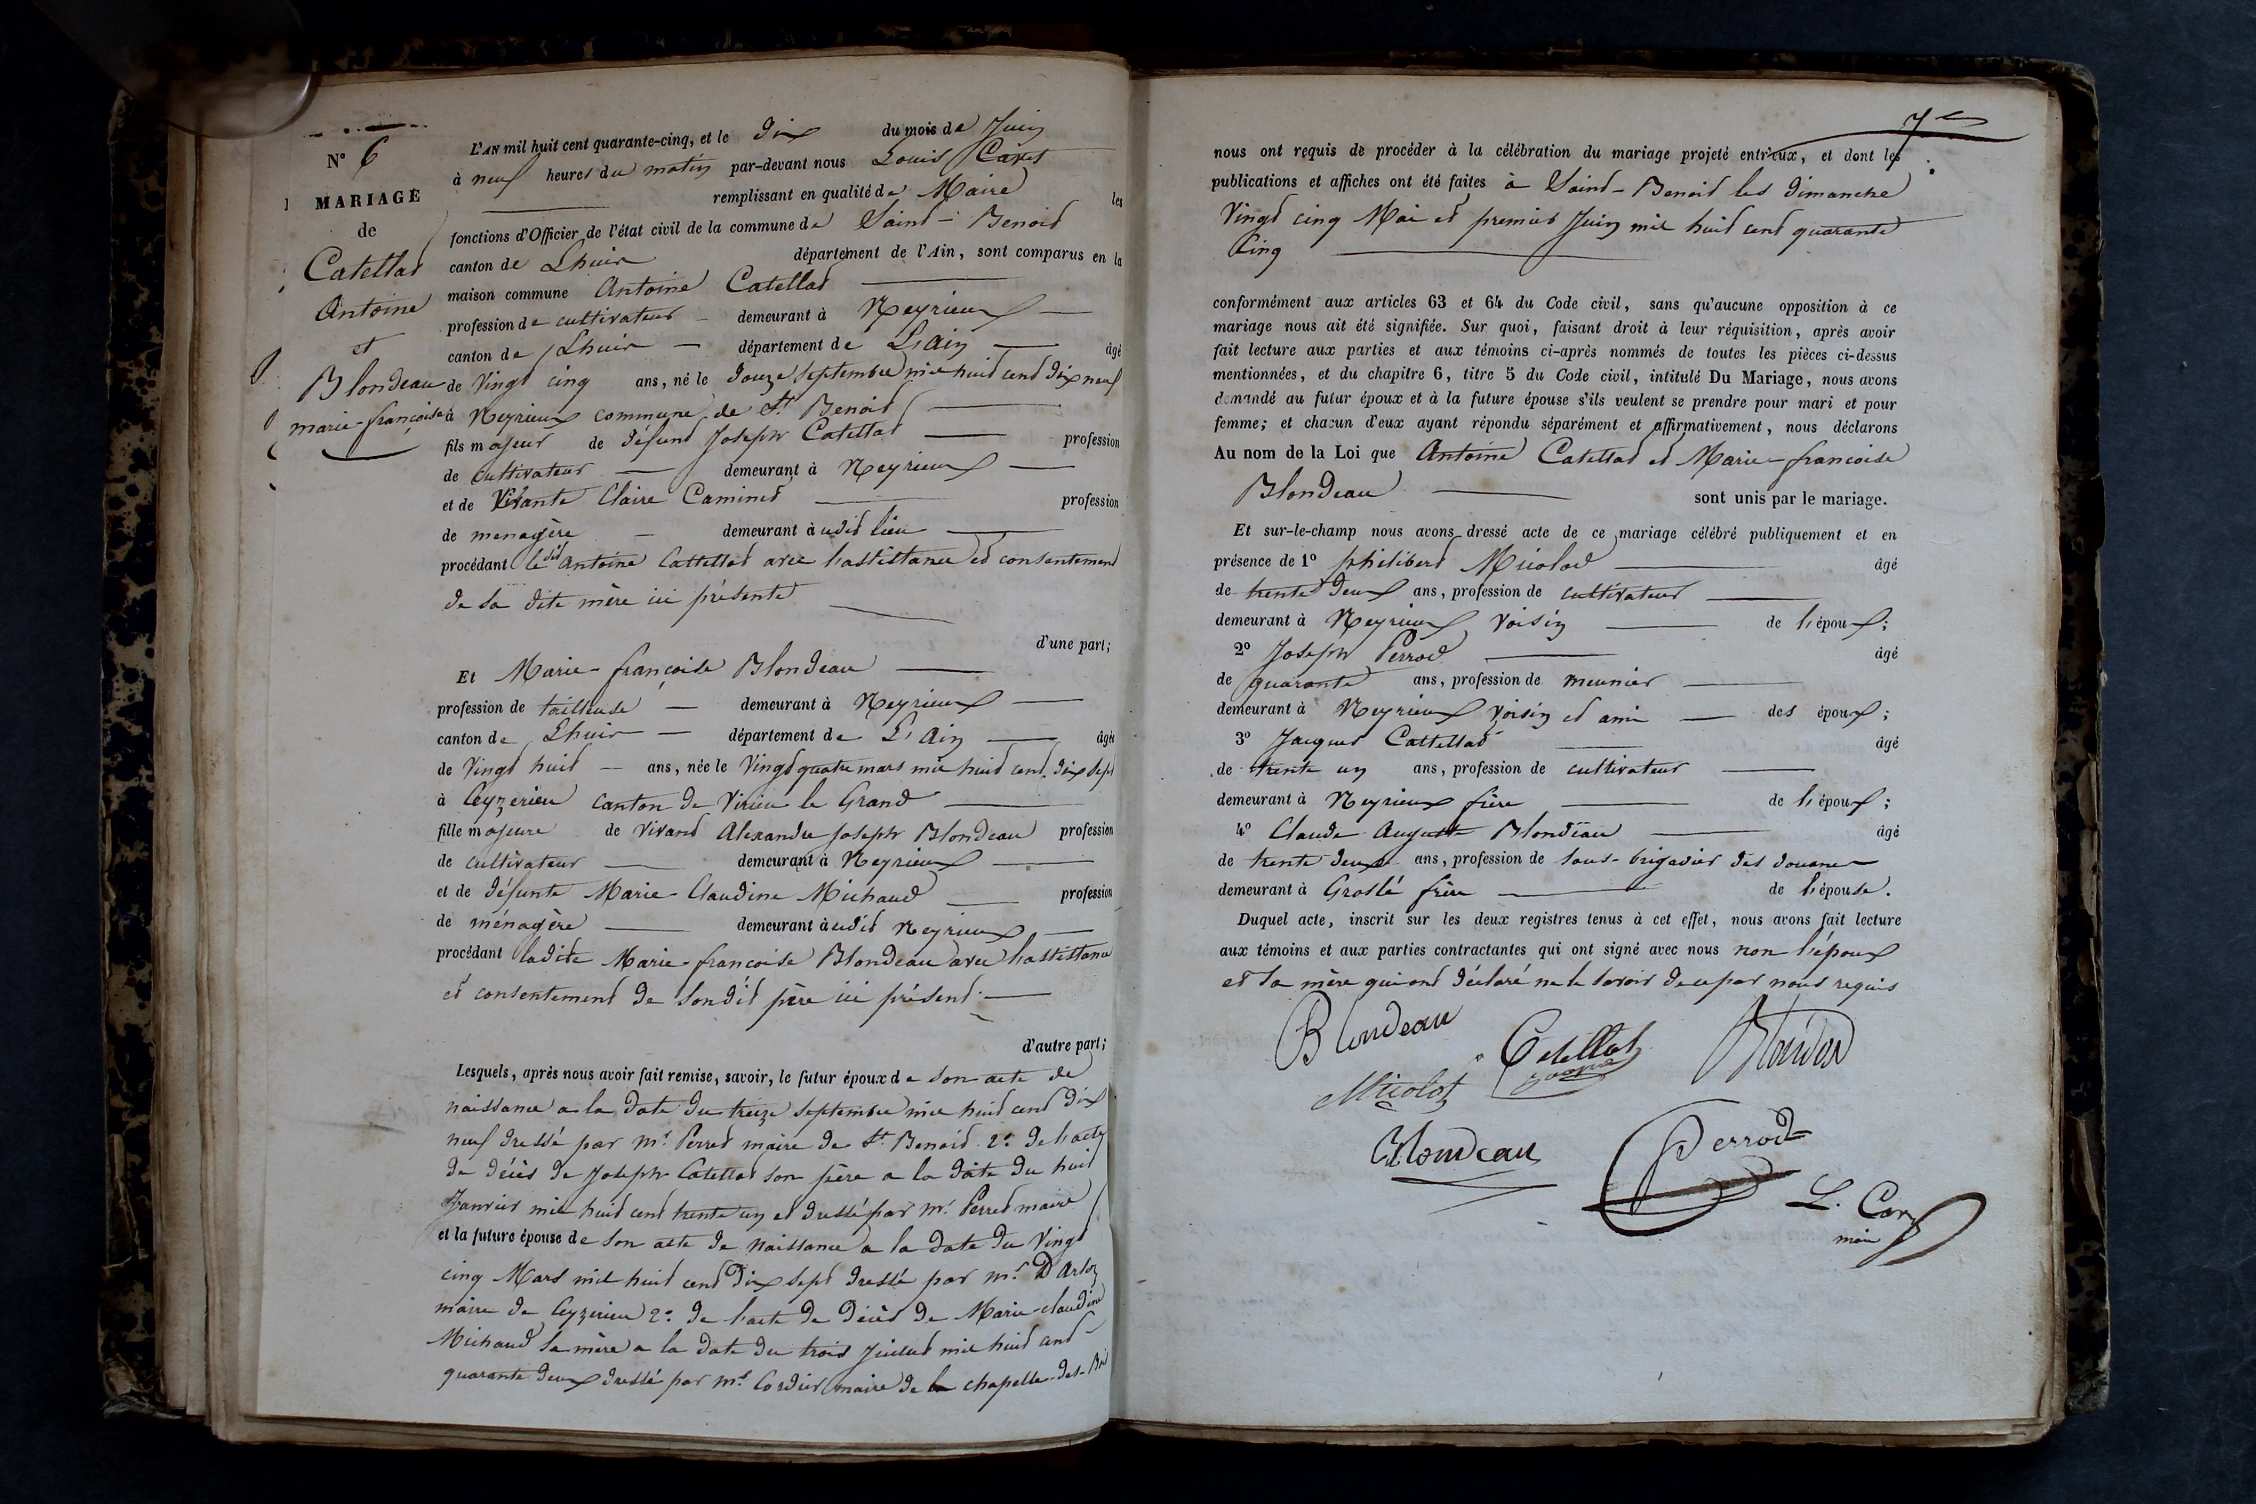 N° 6
MARIAGE
de
Catellat
Antoine
et
Blondeau
marie-françoise
L'AN mil huit cent quarante-cinq, et le dix du mois de Juin
à neuf heures du matin par-devant nous Louis
remplissant en qualité de Maire les
fonctions d'Officier de l'état civil de la commune de Saint-Benoit
canton de Lhuis département de l'Ain, sont comparus en la
maison commune Antoine Catellat
profession de cultivateur demeurant à Neyrieux
canton de Lhuis département de L'Ain âgé
de Vingt cinq ans, né le douze septembre mil huit cent dix neuf
à Neyrieux commune de St Benoit
fils majeur de défunt Joseph Catellat profession
de cultivateur demeurant à Neyrieux
et de Vivante Claire Caminet profession
de menagère demeurant à udit lieu
procédant ledit Antoine Cattellat avec l'assistance et consentement
de sa dite mère ici présente
d'une part;
Et Marie-françoise Blondeau
profession de tailleuse demeurant à Neyrieux
canton de Lhuis département de L'Ain âgée
de Vingt huit ans, née le Vingt quatre mars mil huit cent dix sept
à Ceyzerieu canton de Virieu le Grand
fille majeure de vivant Alexandre Joseph Blondeau profession
de cultivateur demeurant à Neyrieux
et de défunte Marie-Claudine Michaud profession
de ménagère demeurant à udit Neyrieux
procédant ladite Marie-francoise Blondeau avec l'assistance
et consentement de sondit père ici présent
d'autre part;
Lesquels, après nous avoir fait remise, savoir, le futur époux de son acte de
naissance a la date du treize septembre mil huit cent dix
neuf dressé par mr. Perret maire de St. Benoit 2° de l'acte
de décès de Joseph Catellat son père a la date du huit
Janvier mil huit cent trente un et dressé par mr. Perret maire
et la future épouse de son acte de naissance a la date du Vingt
cinq Mars mil huit cent dix sept dressé par mr. D'Arloz
maire de Ceyzerieu 2° de l'acte de décès de Marie-claudine
Michaud sa mère a la date du trois Juillet mil huit cent
quarante deux dressé par mr. Cordier maire de la chapelle-des-Bois
7e
nous ont requis de procéder à la célébration du mariage projeté entr'eux, et dont les
publications et affiches ont été faites à Saint-Benoit les dimanche
Vingt cinq Mai et premier Juin mil huit cent quarante
Cinq
conformément aux articles 63 et 64 du Code civil, sans qu'aucune opposition à ce
mariage nous ait été signifiée. Sur quoi, faisant droit à leur réquisition, après avoir
fait lecture aux parties et aux témoins ci-après nommés de toutes les pièces ci-dessus
mentionnées, et du chapitre 6, titre 5 du Code civil, intitulé Du Mariage, nous avons
demandé au futur époux et à la future épouse s'ils veulent se prendre pour mari et pour
femme; et chacun d'eux ayant répondu séparément et affirmativement, nous déclarons
Au nom de la Loi que Antoine Catellat et Marie-francoise
Blondeau sont unis par le mariage.
Et sur-le-champ nous avons dressé acte de ce mariage célébré publiquement et en
présence de 1° philibert Micolot âgé
de trente deux ans, profession de cultivateur
demeurant à Neyrieux voisin de l'époux;
2° Joseph Perrod âgé
de quarante ans, profession de meunier
demeurant à Neyrieux voisin et ami des époux;
3° Jacques Cattellat âgé
de trente un ans, profession de cultivateur
demeurant à Neyrieux frère de l'époux;
4° Claude Auguste Blondeau âgé
de trente deux ans, profession de sous-brigadier des douanes
demeurant à Groslé frère de l'épouse.
Duquel acte, inscrit sur les deux registres tenus à cet effet, nous avons fait lecture
aux témoins et aux parties contractantes qui ont signé avec nous non l'époux
et sa mère qui ont déclaré ne le savoir de ce par nous requis
Blondeau Catellat
Micolot
Blondeau Perrod
L.